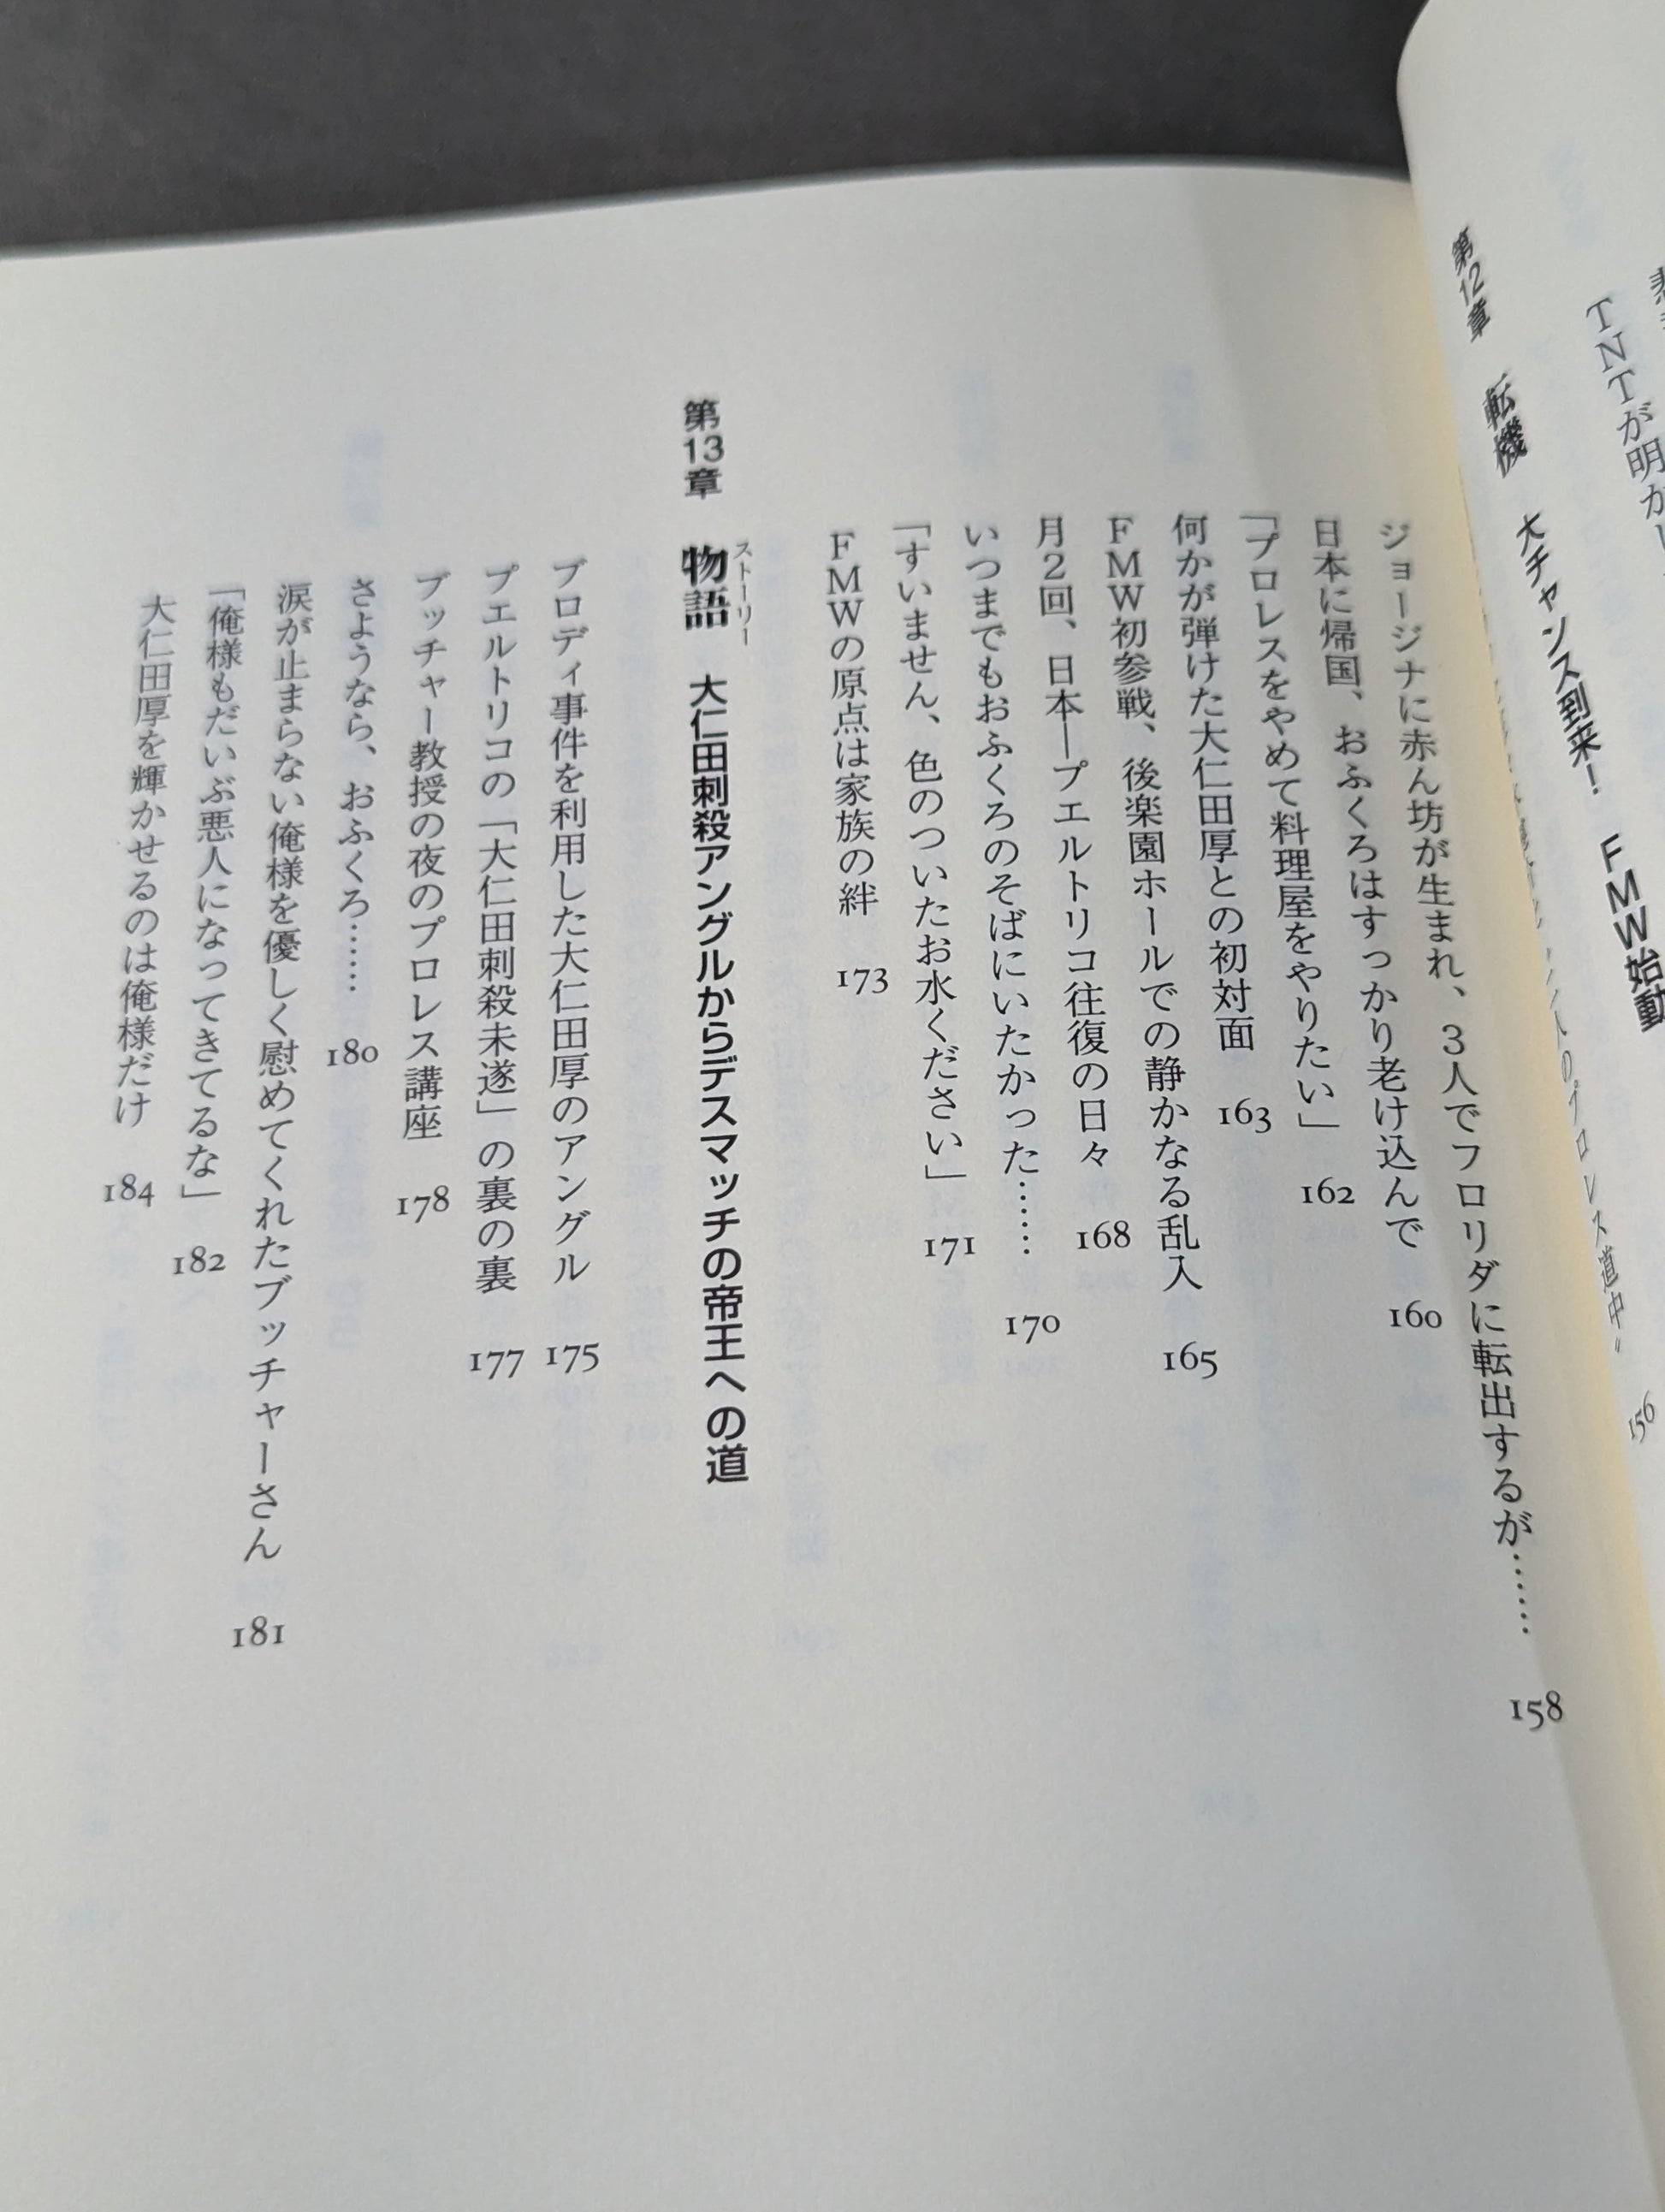 TNTが明か
156
第12章 転機 大チャンス到来！ FMW始動
ジョージナに赤ん坊が生まれ、3人でフロリダに転出するが…… 158
日本に帰国、おふくろはすっかり老け込んで 160
「プロレスをやめて料理屋をやりたい」 162
何かが弾けた大仁田厚との初対面 163
FMW初参戦、後楽園ホールでの静かなる乱入 165
月2回、日本―プエルトリコ往復の日々 168
いつまでもおふくろのそばにいたかった…… 170
「すいません、色のついたお水ください」 171
FMWの原点は家族の絆 173
第13章 物語 ストーリー 大仁田刺殺アングルからデスマッチの帝王への道
ブロディ事件を利用した大仁田厚のアングル 175
プエルトリコの「大仁田刺殺未遂」の裏の裏 177
ブッチャー教授の夜のプロレス講座 178
さようなら、おふくろ…… 180
涙が止まらない俺様を優しく慰めてくれたブッチャーさん 181
「俺様もだいぶ悪人になってきてるな」 182
大仁田厚を輝かせるのは俺様だけ 184